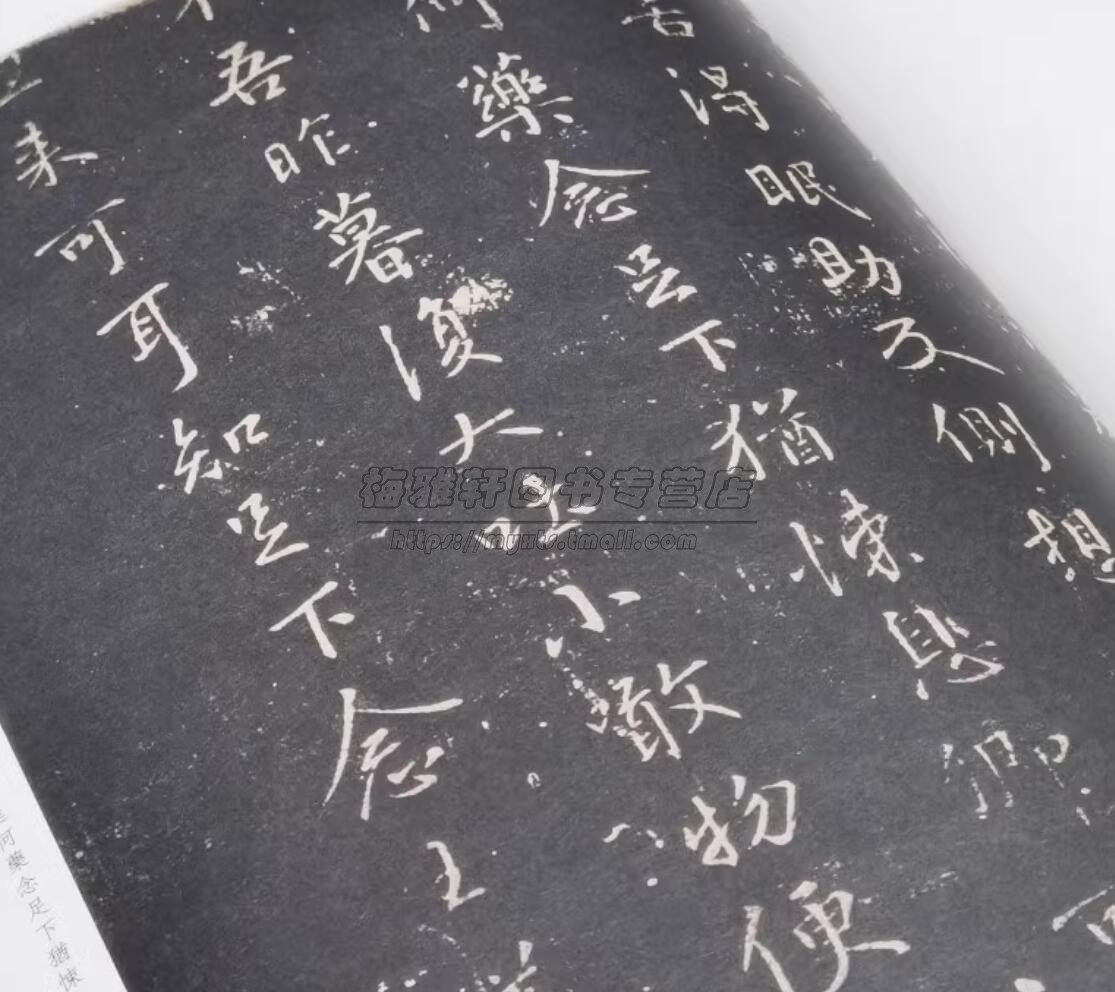 得眠助反側想
何藥念足下猶悚息卿可
吾昨暮復大吐小噉物便
来可耳知足下念王
何藥念足下猶悚
梅雅轩图书专营店
https://myxts.tmall.com